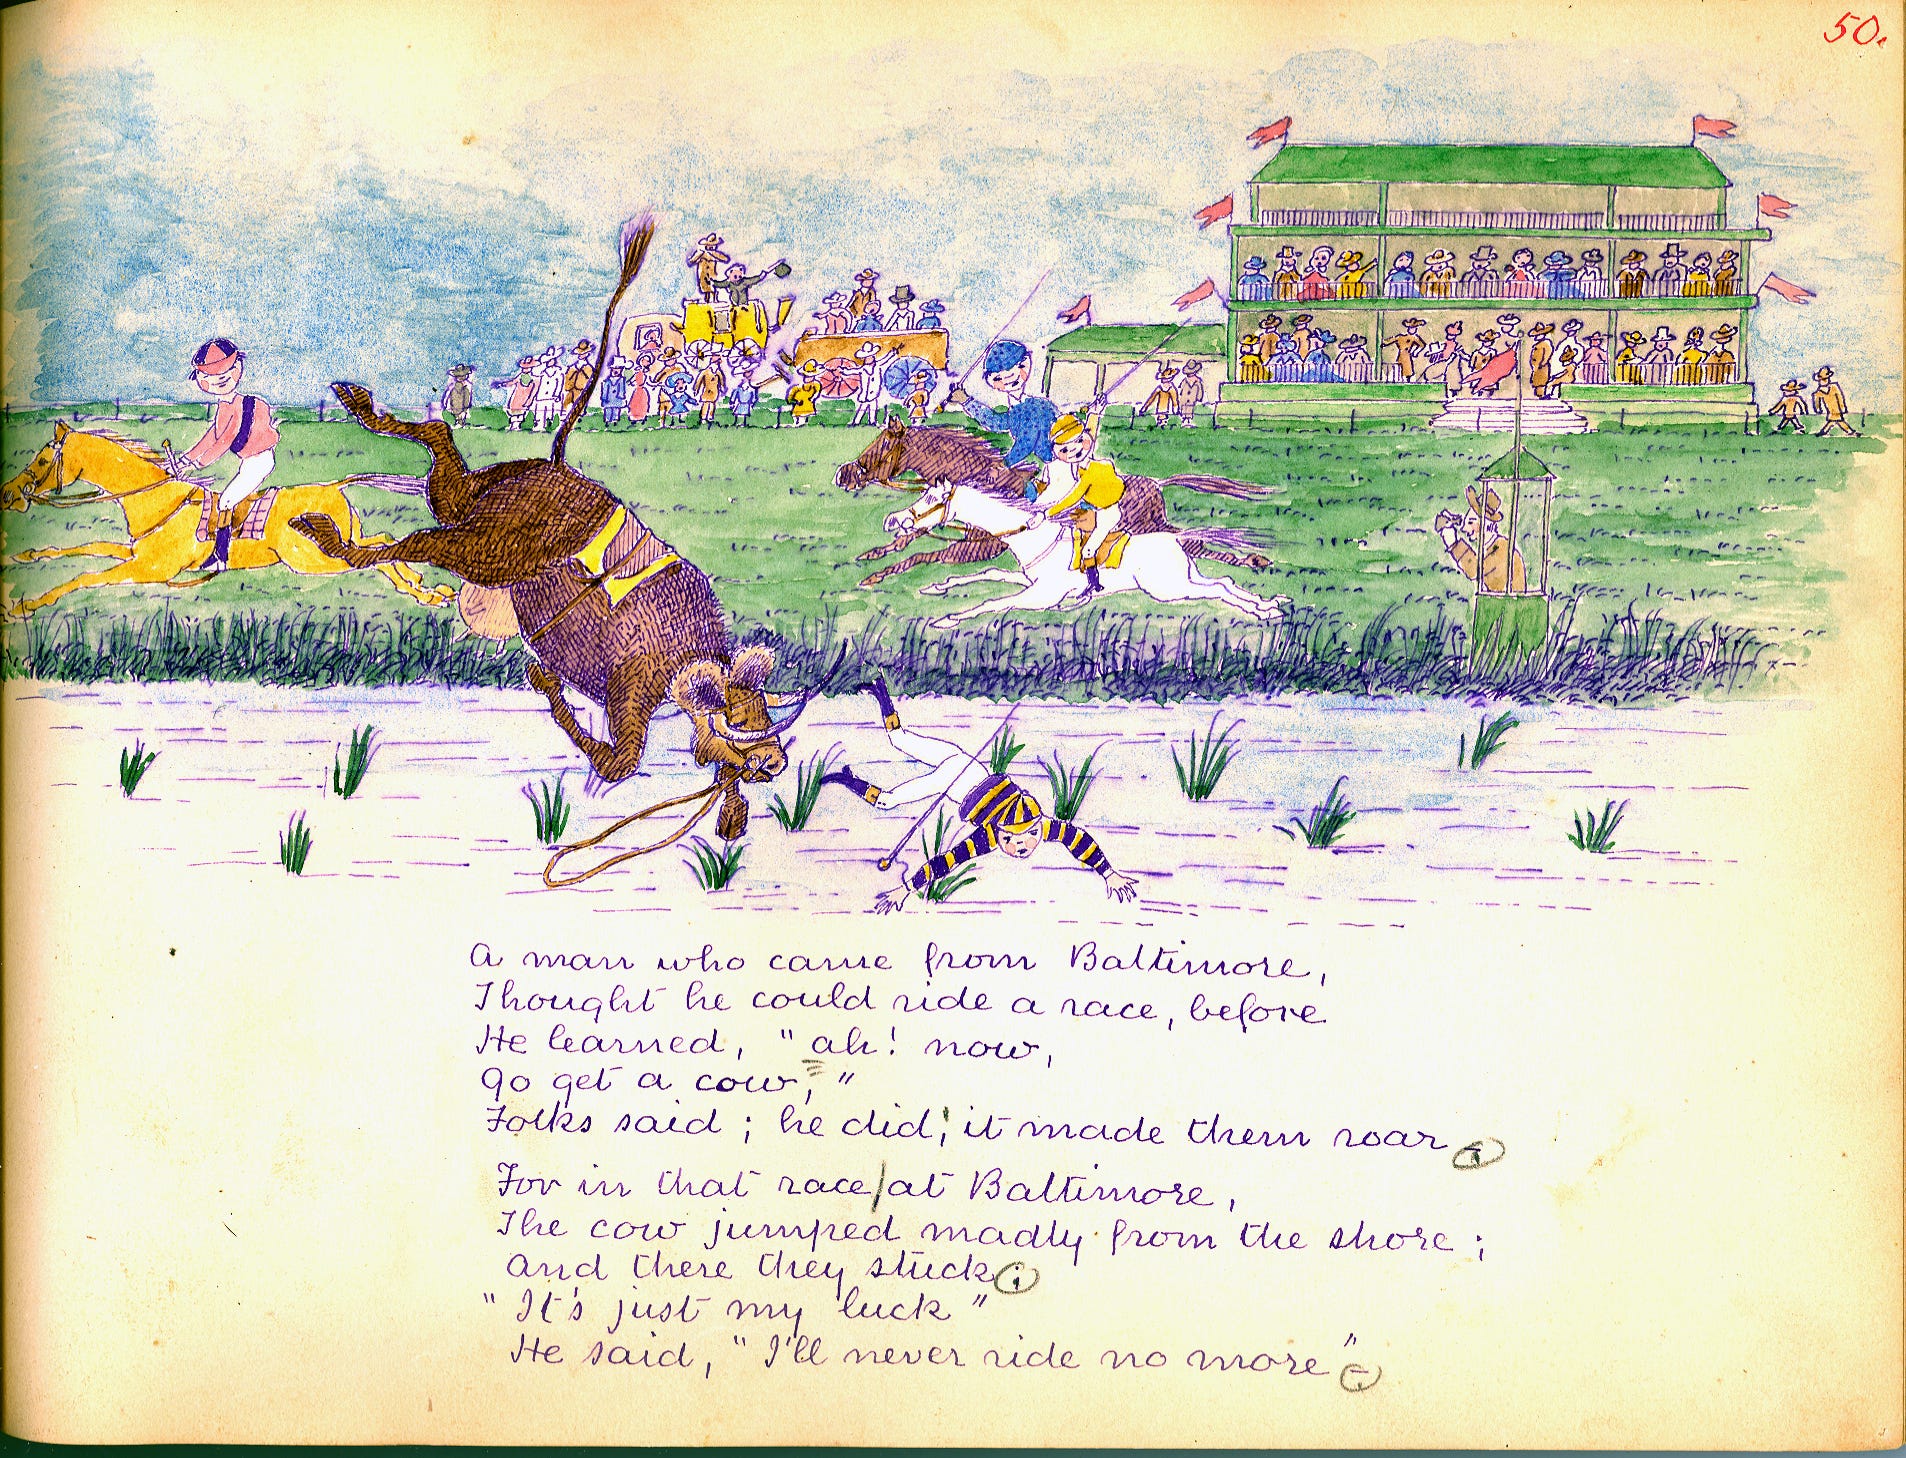 50.
A man who came from Baltimore,
Thought he could ride a race, before
He learned, "ah! now,
Go get a cow,"
Folks said; he did; it made them roar.
For in that race/at Baltimore,
The cow jumped madly from the shore;
And there they stuck;
"It's just my luck"
He said, "I'll never ride no more".